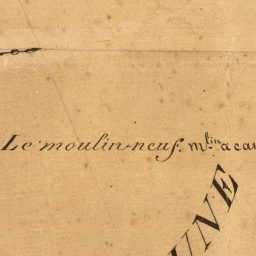 Le moulin-neuf. m.lin a eau
UNE